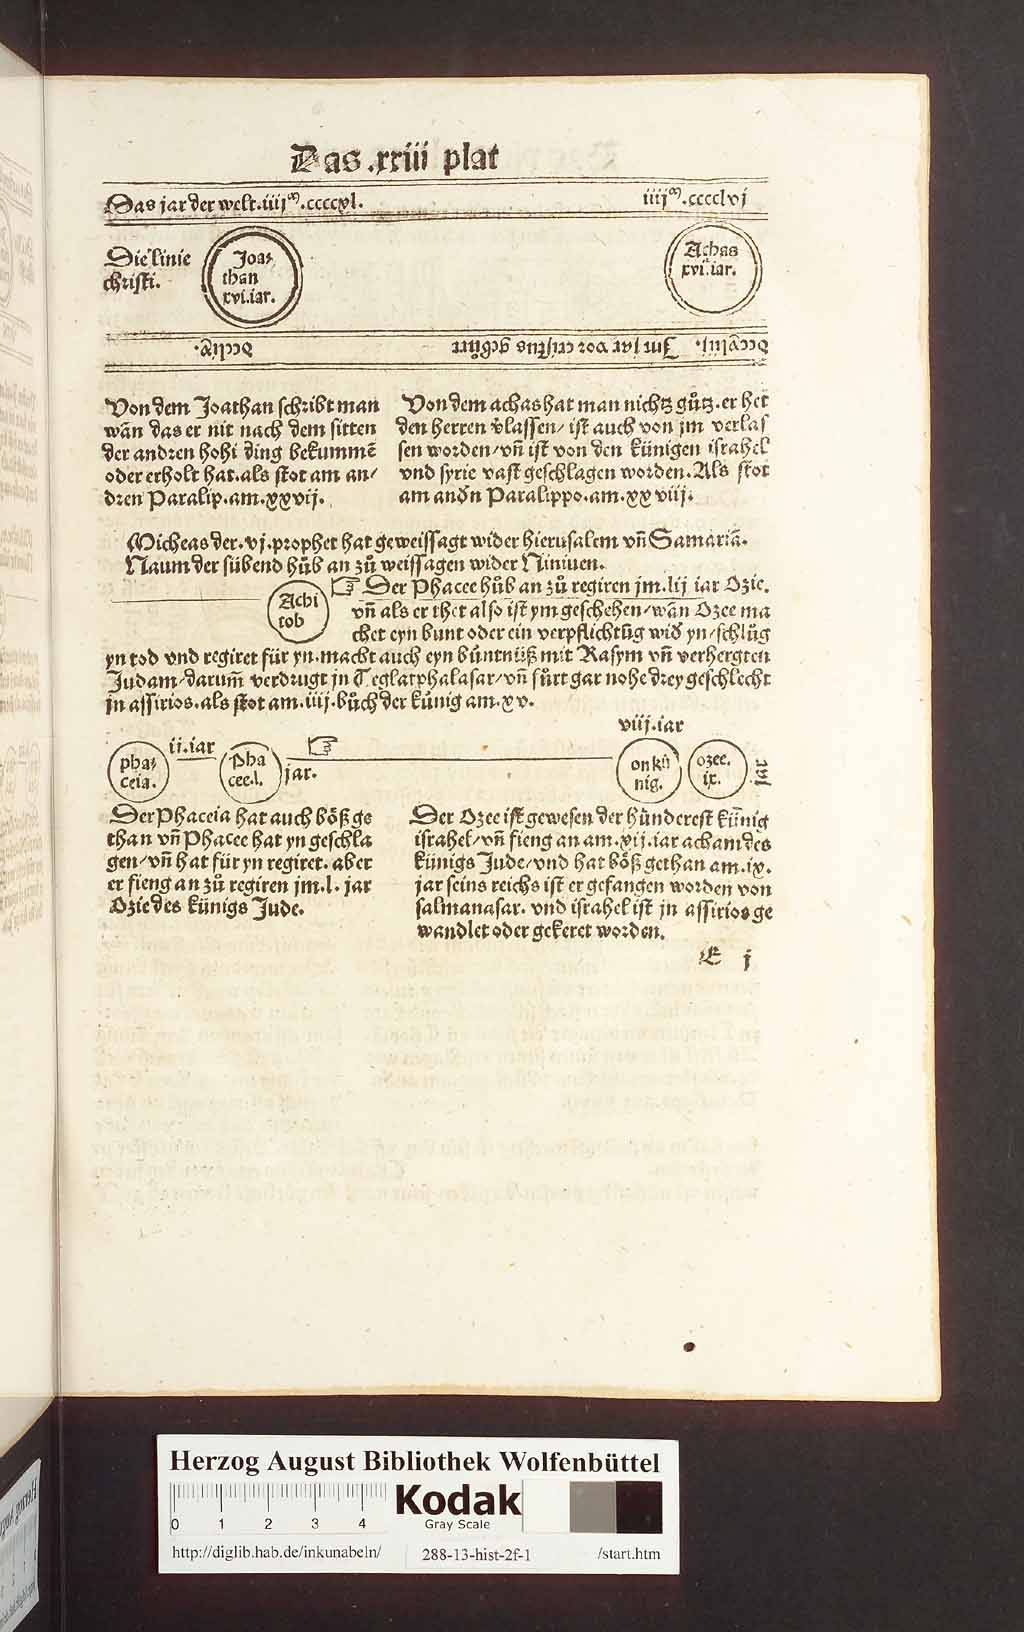 Das .xxiii plat
Das jar der welt.iiijᵐ.ccccxl.
iiijᵐ.cccclvj
Die linie
christi.
Joa⸗
than
xvi.iar.
Achas
xvi.iar.
Im jar vor cristus geburt
Von dem Joathan schribt man
wān das er nit nach dem sitten
der andren hohi ding bekummē
oder erholt hat.als stot am an/
dren Paralip.am.xxvij.
Von dem achas hat man nichtz gůtz.er het
den herren v̄lassen/ ist auch von jm verlas
sen worden/vn̄ ist von den künigen israhel
vnd syrie vast geschlagen worden. Als stot
am andn̄ Paralippo.am.xxviij.
Micheas der.vj.prophet hat geweissagt wider hierusalem vn̄ Samariā.
Naum der sübend hůb an zů weissagen wider Niniuen.
Achi
tob
☞ Der Phacee hůb an zů regiren jm.lij iar Ozie.
vn̄ als er thet also ist ym geschehen/wān Ozee ma
chet eyn bunt oder ein verpflichtūg wid̄ yn/schlůg
yn tod vnd regiret für yn.macht auch eyn büntnüß mit Rasym vn̄ verhergten
Judam/darum̄ verdrugt jn Teglatphalasar/vn̄ fůrt gar nohe drey geschlecht
jn assirios.als stot am.iiij.bůch der künig am.xv.
viij.iar
pha⸗
ceia.
ii.iar
Pha
cee.l.
☞
jar.
on kü
nig.
ozee.
ix.
jar
Der Phaceia hat auch böß ge
than vn̄ Phacee hat yn geschla
gen/vn̄ hat für yn regiret. aber
er fieng an zů regiren jm.l. jar
Ozie des künigs Jude.
Der Ozee ist gewesen der hünderest künig
israhel/vn̄ fieng an am.xij.iar acham des
künigs Jude/vnd hat böß gethan am.ix.
jar seins reichs ist er gefangen worden von
salmanasar. vnd israhel ist jn assirios ge
wandlet oder gekeret worden.
E j
Herzog August Bibliothek Wolfenbüttel
0 1 2 3 4
Kodak
Gray Scale
http://diglib.hab.de/inkunabeln/ 288-13-hist-2f-1 /start.htm